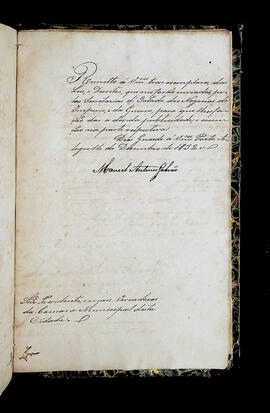 Remetto á Vm.ces tres exemplares, das
Leis, e Decretos, que me forão enviados pe-
las Secretarias d'Estado dos Negocios do
Imperio, e da Guerra, para que
dar a devida publicidade, e execu-
ção na parte respectiva.
Deos Guarde á Vm.ces Porto A-
legre 16 de Dezembro de 1832
Manoel Antonio Galvão
Snr.s Presidente, e mais Vereadores
da Camara Municipal desta
Cidade.